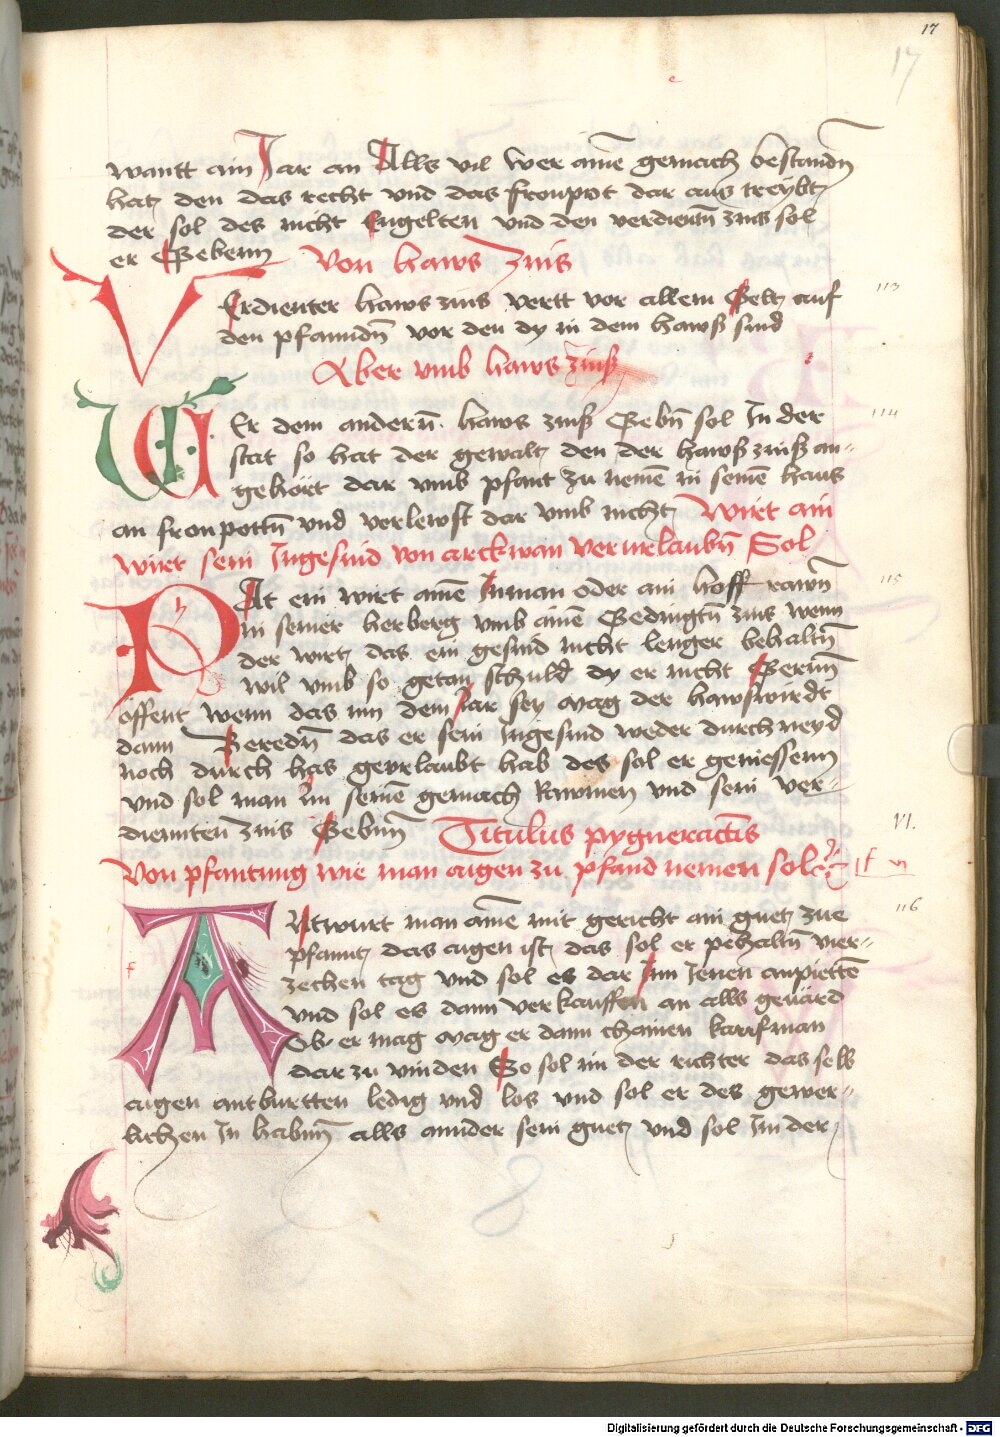 17
17
wantt ain Jar an Alls vil wer aine͞ gemach bestandn͞
hat den das recht vnd das fronpot dar aus treybt
der sol des nicht Engelten vnd den verdientn͞ zins sol
er Gebenn Von haws Zins
VErdienter haws zins vertt vor allem Gelt auf 113
den pfanndn͞ vor den dy in dem hawß sind
Aber vmb haws zinß
WEr dem andern͞ haws zinß Gebn͞ sol In der 114
stat so hat der gewalt den der hawß zinß an-
gehört dar vmb pfant zu neme͞ in seine͞ haus
an fronpottn͞ vnd verlewst dar vmb nicht Wirt ain
wirt sein Ingesind von arckwan vervrlaubn͞ Sol
HAt ein wirt aine͞ Inman oder ain hoff rawn͞ 115
in seiner herberg vmb aine͞ Gedingtn͞ zins wenn
der wirt das ein gesind nicht lenger behaltn͞
wil vmb so getan schuld dy er nicht Gernn͞
öffent wenn das im dem Jar sey Mag der hawswirdt
dann Beredn͞ das er sein Ingesind weder durch neyd
noch durch has gevrlaubt hab des sol er geniessenn
vnd sol man Im seine͞ gemach Rawmen vnd sein ver-
diennten zins Gebnn͞ Titulus pygneracc͞is VI.
Von pfantung wie man aigen zu pfand nemen sol
ANtwurt man aine͞ mit gericht ain guet zue 116
pfannt das aigen ist das sol er pehaltn͞ vier-
zechen tag vnd sol es dar Inn Jenen anpiette͞
vnd sol es dann verkauffen an alls geuärd
Ob er mag Mag er dann chainen kauffman
dar zu vinden So sol im der richter das selb
aigen antburtten ledig vnd los vnd sol er des gewer-
lichen In habnn͞ alls annder sein guet vnd sol In der
Digitalisierung gefördert durch die Deutsche Forschungsgemeinschaft - DFG